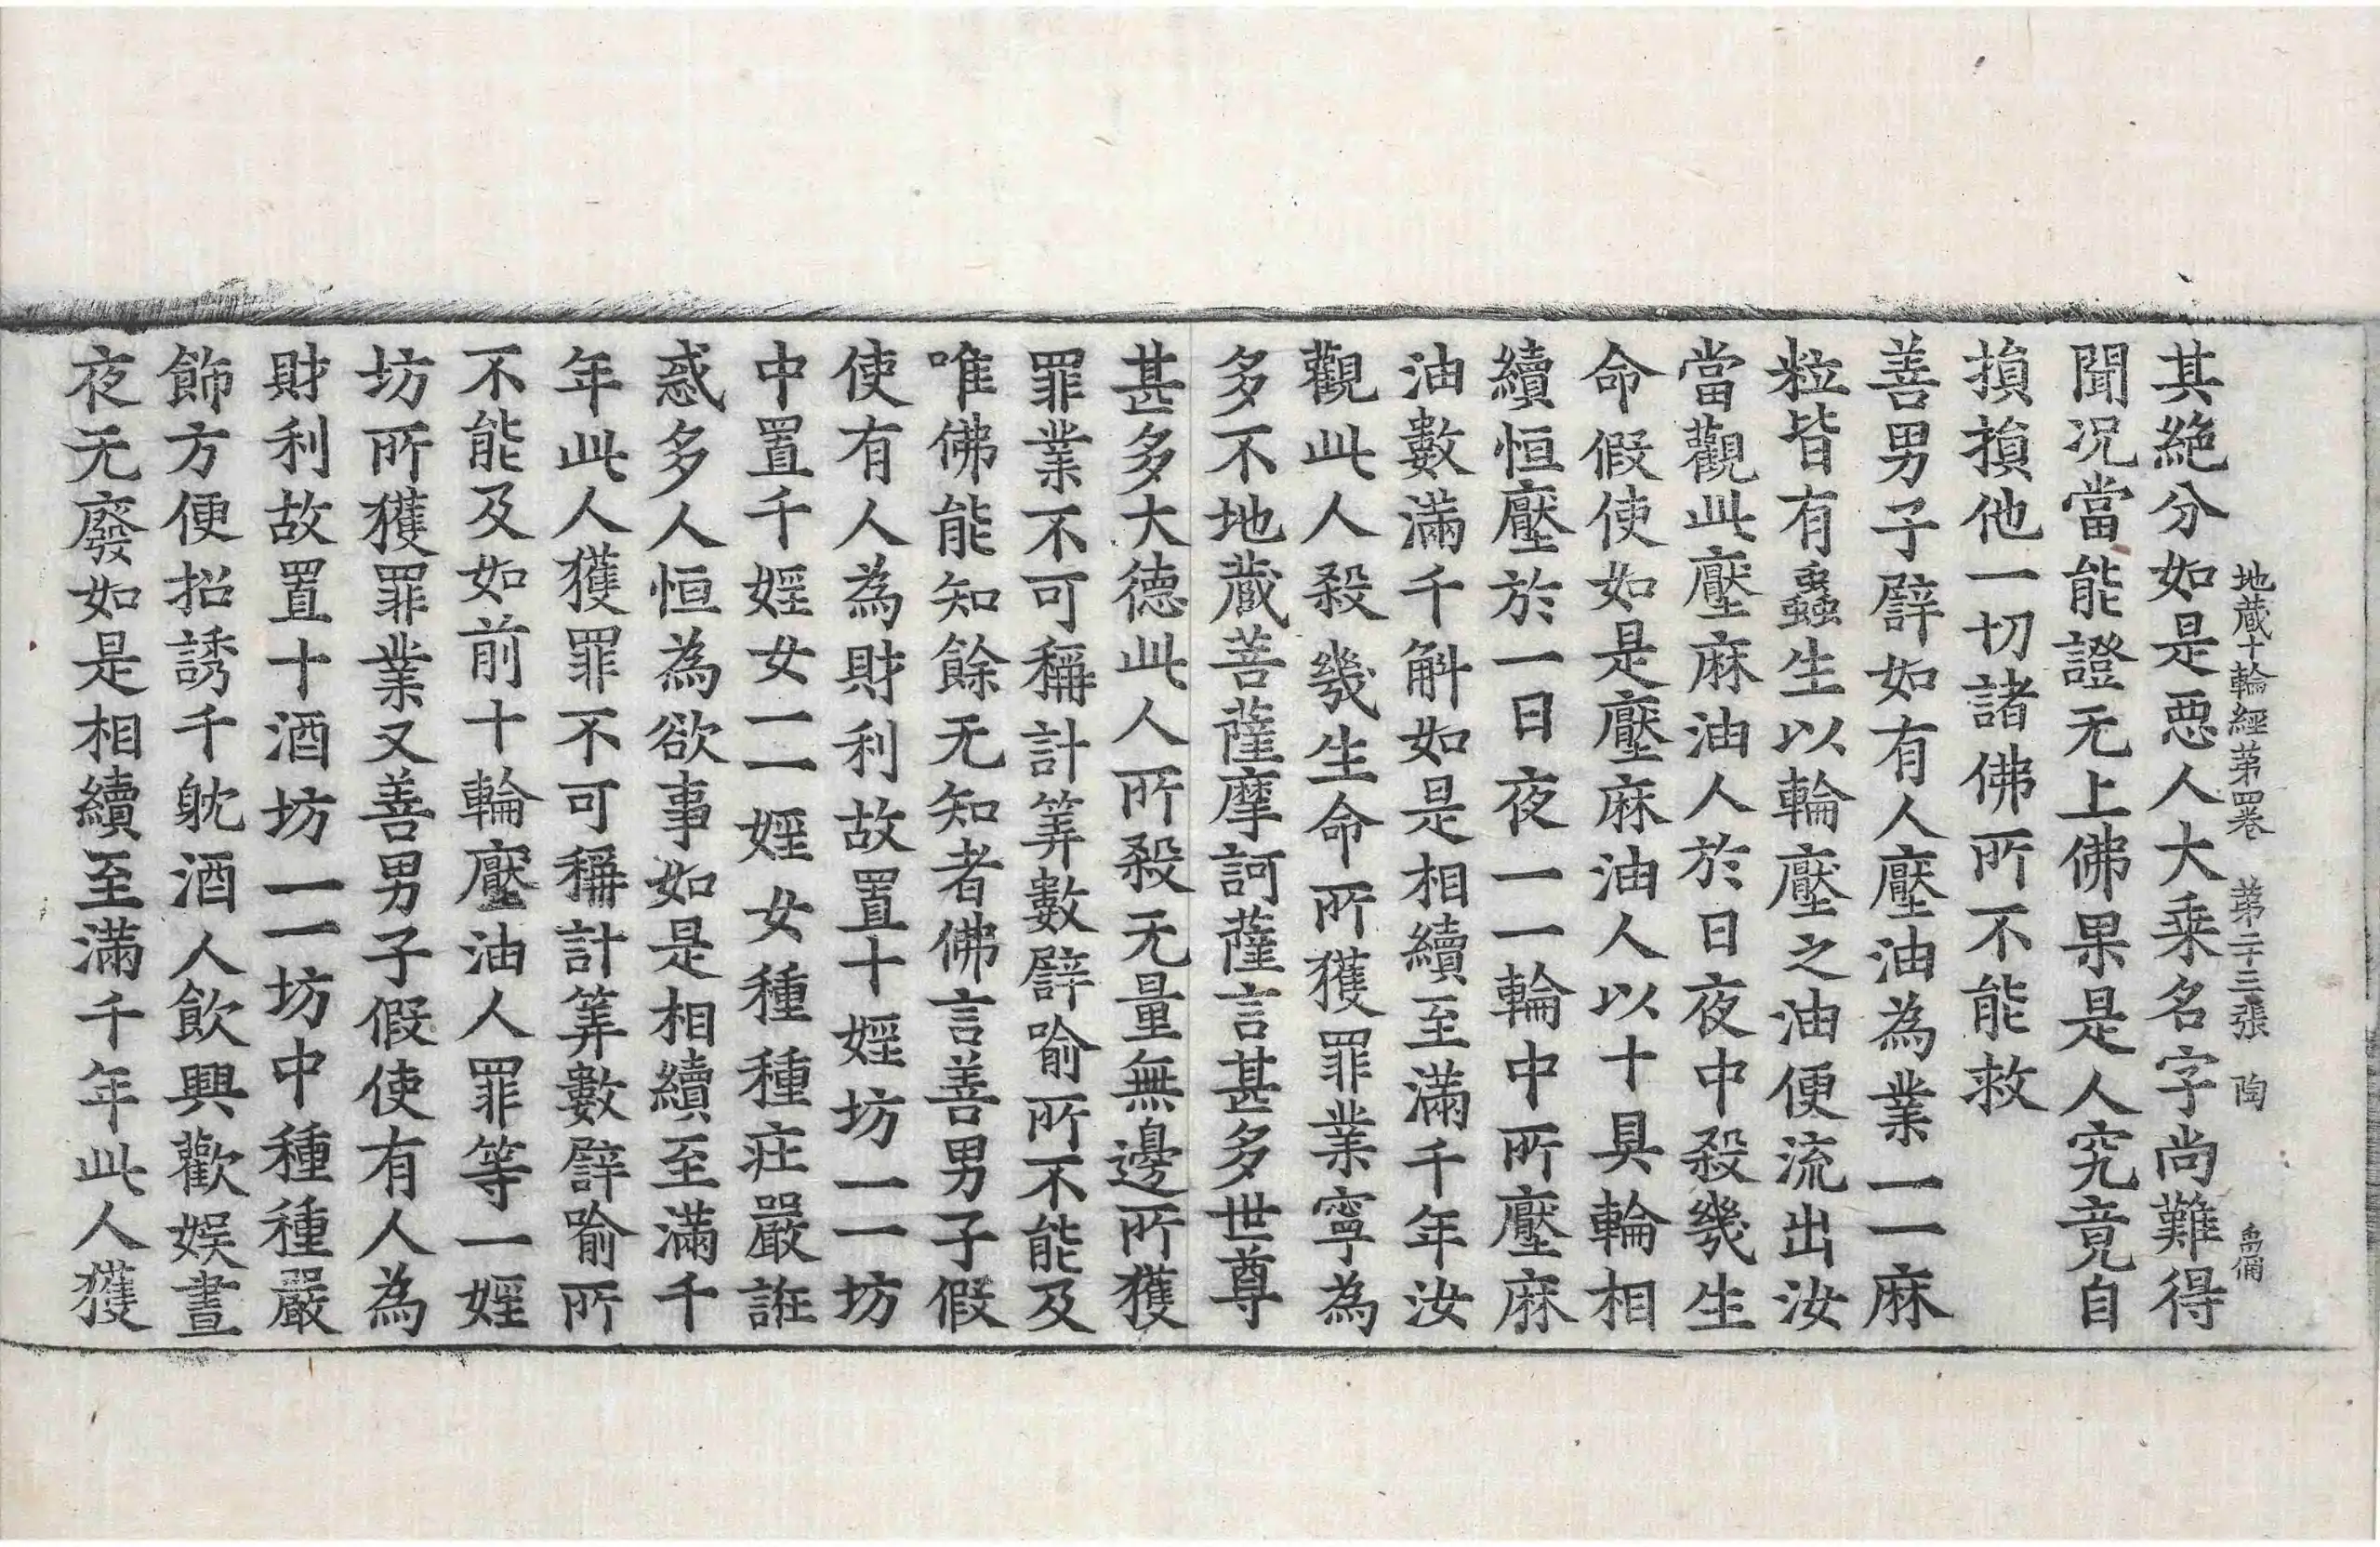 地蔵十輪經苐四卷 苐二十三張 陶
其絶分如是惡人大乘名字尚難得
聞况當能證无上佛果是人究竟自
損損他一切諸佛所不能救
善男子譬如有人壓油為業一一麻
粒皆有蟲生以輪壓之油便流出汝
當觀此壓麻油人於日夜中殺幾生
命假使如是壓麻油人以十具輪相
續恒壓於一日夜一一輪中所壓麻
油數滿千斛如是相續至滿千年汝
觀此人殺幾生命所獲罪業寧為
多不地蔵菩薩摩訶薩言甚多世尊
甚多大德此人所殺无量無邊所獲
罪業不可稱計筭數譬喻所不能及
唯佛能知餘无知者佛言善男子假
使有人為財利故置十婬坊一一坊
中置千婬女一一婬女種種疘嚴誑
惑多人恒為欲事如是相續至滿千
年此人獲罪不可稱計筭數譬喻所
不能及如前十輪壓油人罪等一婬
坊所獲罪業又善男子假使有人為
財利故置十酒坊一一坊中種種嚴
飾方便招誘千躭酒人飲興歡娱晝
夜无廢如是相續至滿千年此人獲